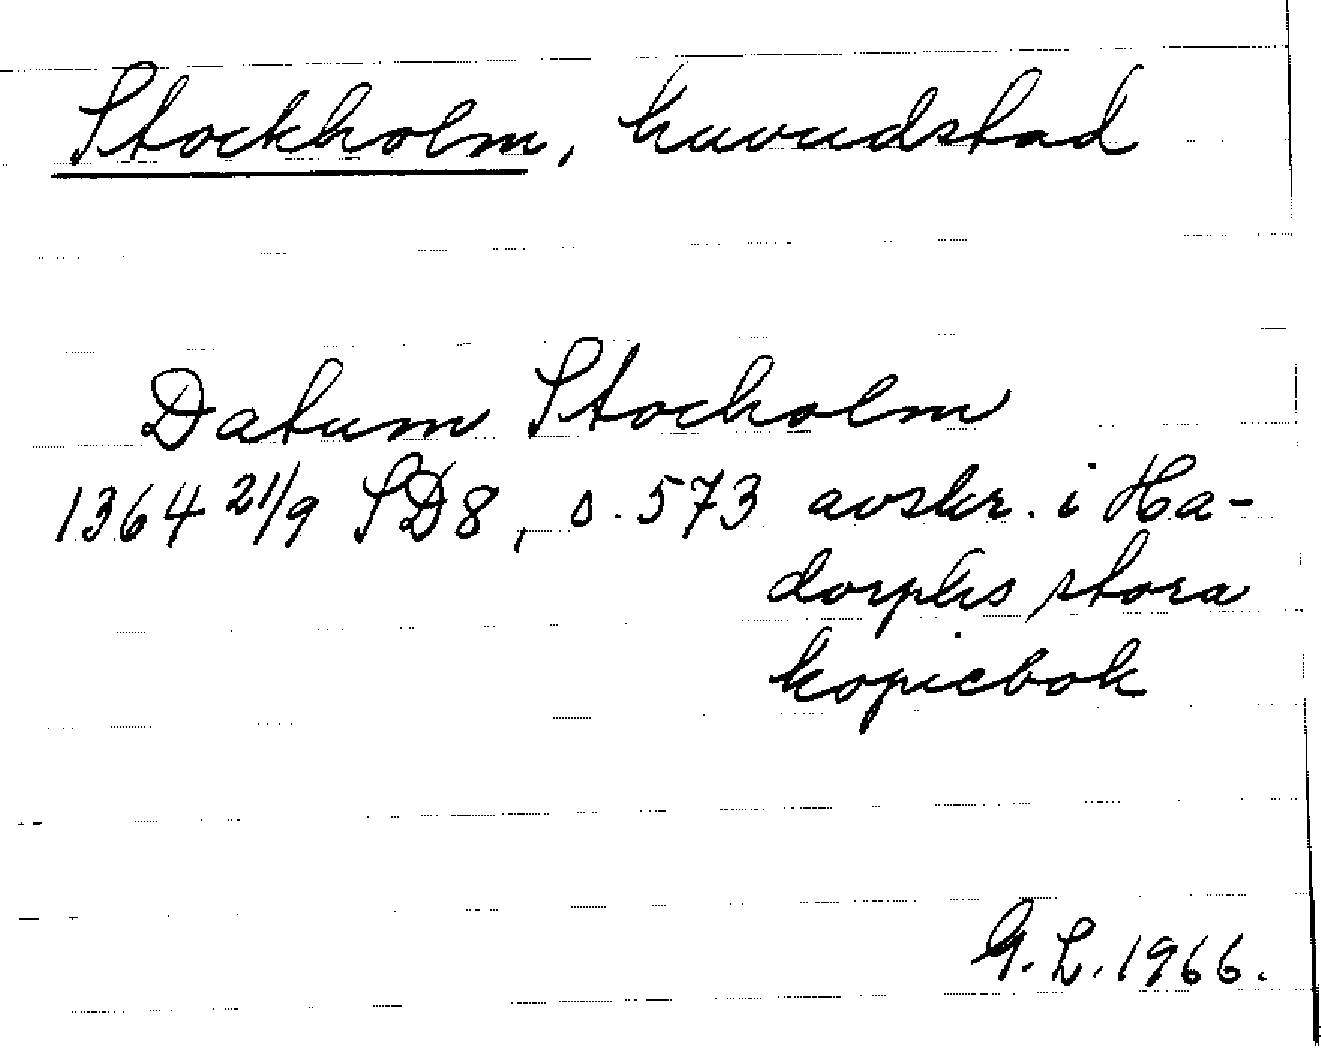 Stockholm, huvudstad
Datum Stocholm
1364 21/9 SD8, s. 573 avskr. i Ha-
dorphs stora
kopiebok
G. L. 1966.